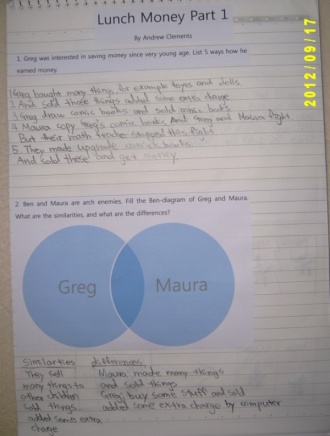 Lunch Money Part 1
By Andrew Clements
2012/09/17
1. Greg was interested in saving money since very young age. List 5 ways how he
earned money.
1. Greg bought many things for example toyes and dolls
2. And sold those things added some extra charge
3. Greg draw comic books and sold comic books
4. Maura copy Greg's comic books. And Greg and Maura fight
But their math teacher stopped this fight
5. They made upgrade comick books.
And sold these and get money
2. Ben and Maura are arch enemies. Fill the Ben-diagram of Greg and Maura.
What are the similarities, and what are the differences?
Greg
Maura
Similarties differences
They sell Maura made many things
many things to and sold things
other children Greg buy some stuff and sold
sold things added some extra charge by computer
added some extra
charge